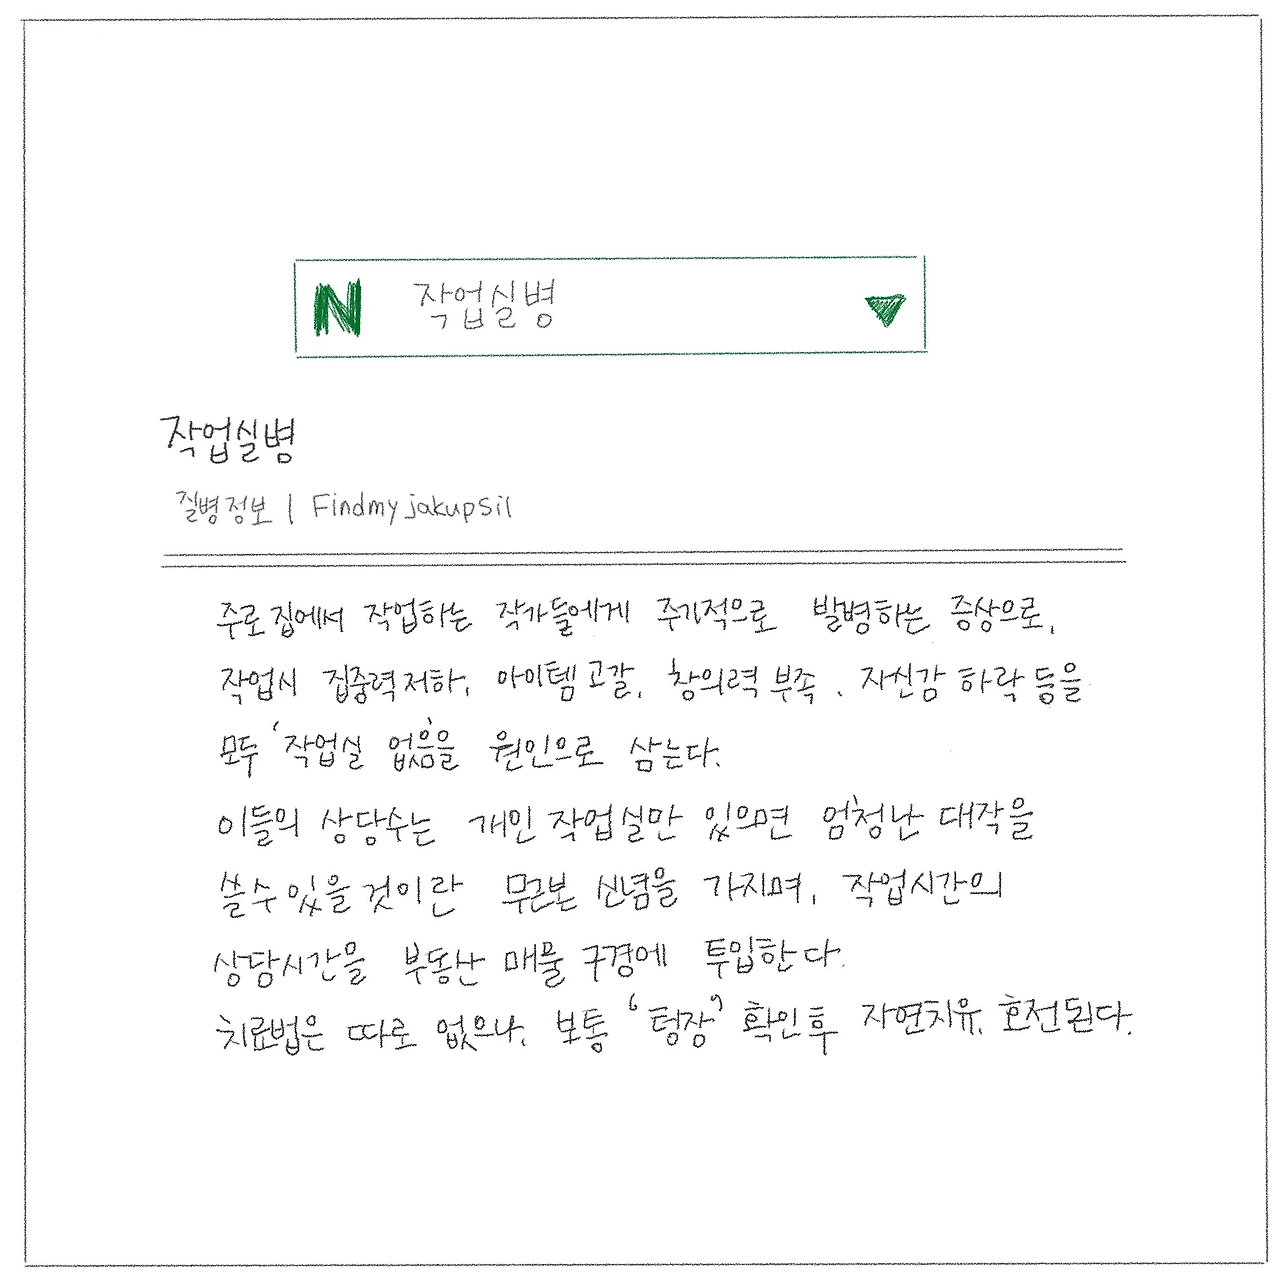 N 작업실병
작업실병
질병정보 | Findmyjakupsil
주로 집에서 작업하는 작가들에게 주기적으로 발병하는 증상으로,
작업시 집중력저하, 아이템고갈, 창의력부족, 자신감 하락 등을
모두 '작업실 없음'을 원인으로 삼는다.
이들의 상당수는 개인 작업실만 있으면 엄청난 대작을
쓸수있을것이란 무근본 신념을 가지며, 작업시간의
상당시간을 부동산 매물 구경에 투입한다.
치료법은 따로 없으나, 보통 '텅장' 확인후 자연치유, 호전된다.